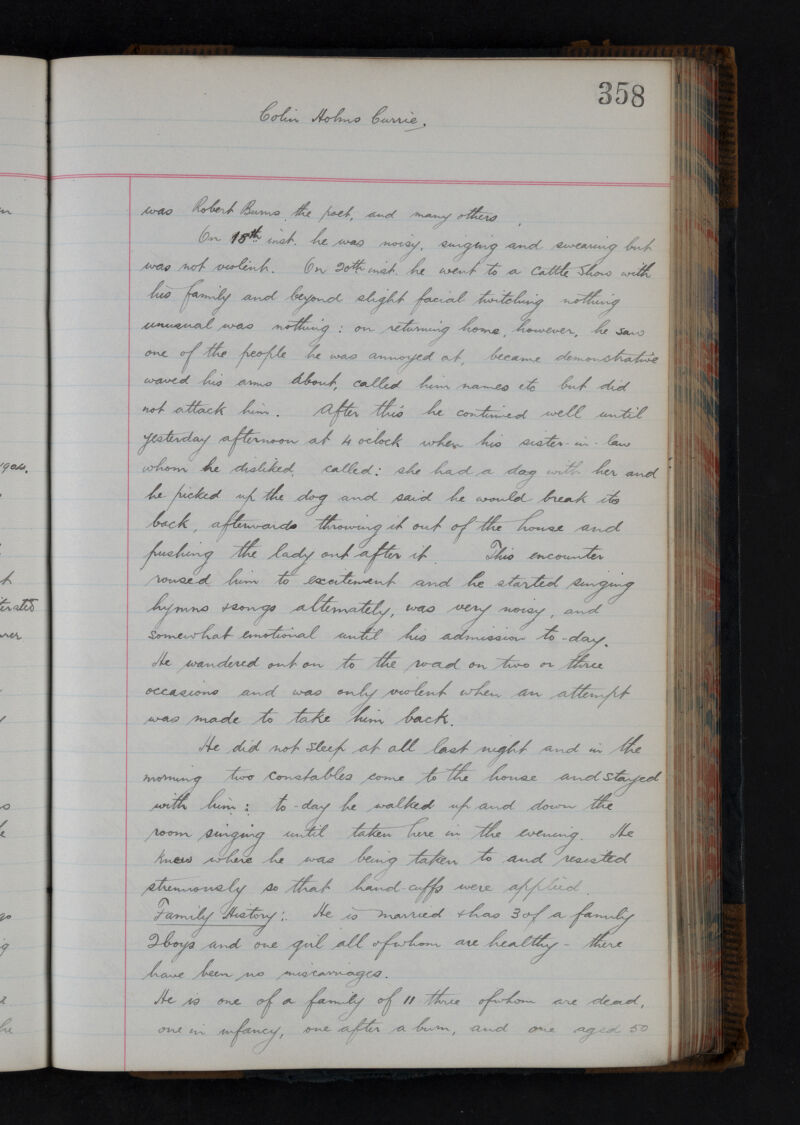 358
Colin Holms Currie.
was Robert Burns the poet, and many others.
On 18th inst. he was noisy, singing and swearing but
was not violent. On 20th inst. he went to a Cattle Show with
his family and beyond slight facial twitching nothing
unusual was nothing : on returning home, however, he saw
one of the people he was annoyed at, became demonstrative
waved his arms about, called him names etc but did
not attack him. After this he continued well until
yesterday afternoon at 4 oclock when his sister-in-law
whom he disliked, called : she had a dog with her and
he picked up the dog and said he would break its
back, afterwards throwing it out of the house and
pushing the lady out after it. This encounter
roused him to excitement and he started singing
hymns & songs alternately, was very noisy, and
somewhat emotional until his admission to-day.
He wandered out on to the road on two or three
occasions and was only violent when an attempt
was made to take him back.
He did not sleep at all last night and in the
morning two constables come to the house and stayed
with him : to-day he walked up and down the
room singing until taken here in the evening. He
knew where he was being taken to and resisted
strenuously so that hand-cuffs were applied.
Family History : He is married & has 3 of a family
2 boys and one girl all of whom are healthy - there
have been no miscarriages.
He is one of a family of 11 three of whom are dead,
one in infancy, one after a burn, and one aged 50
1904.